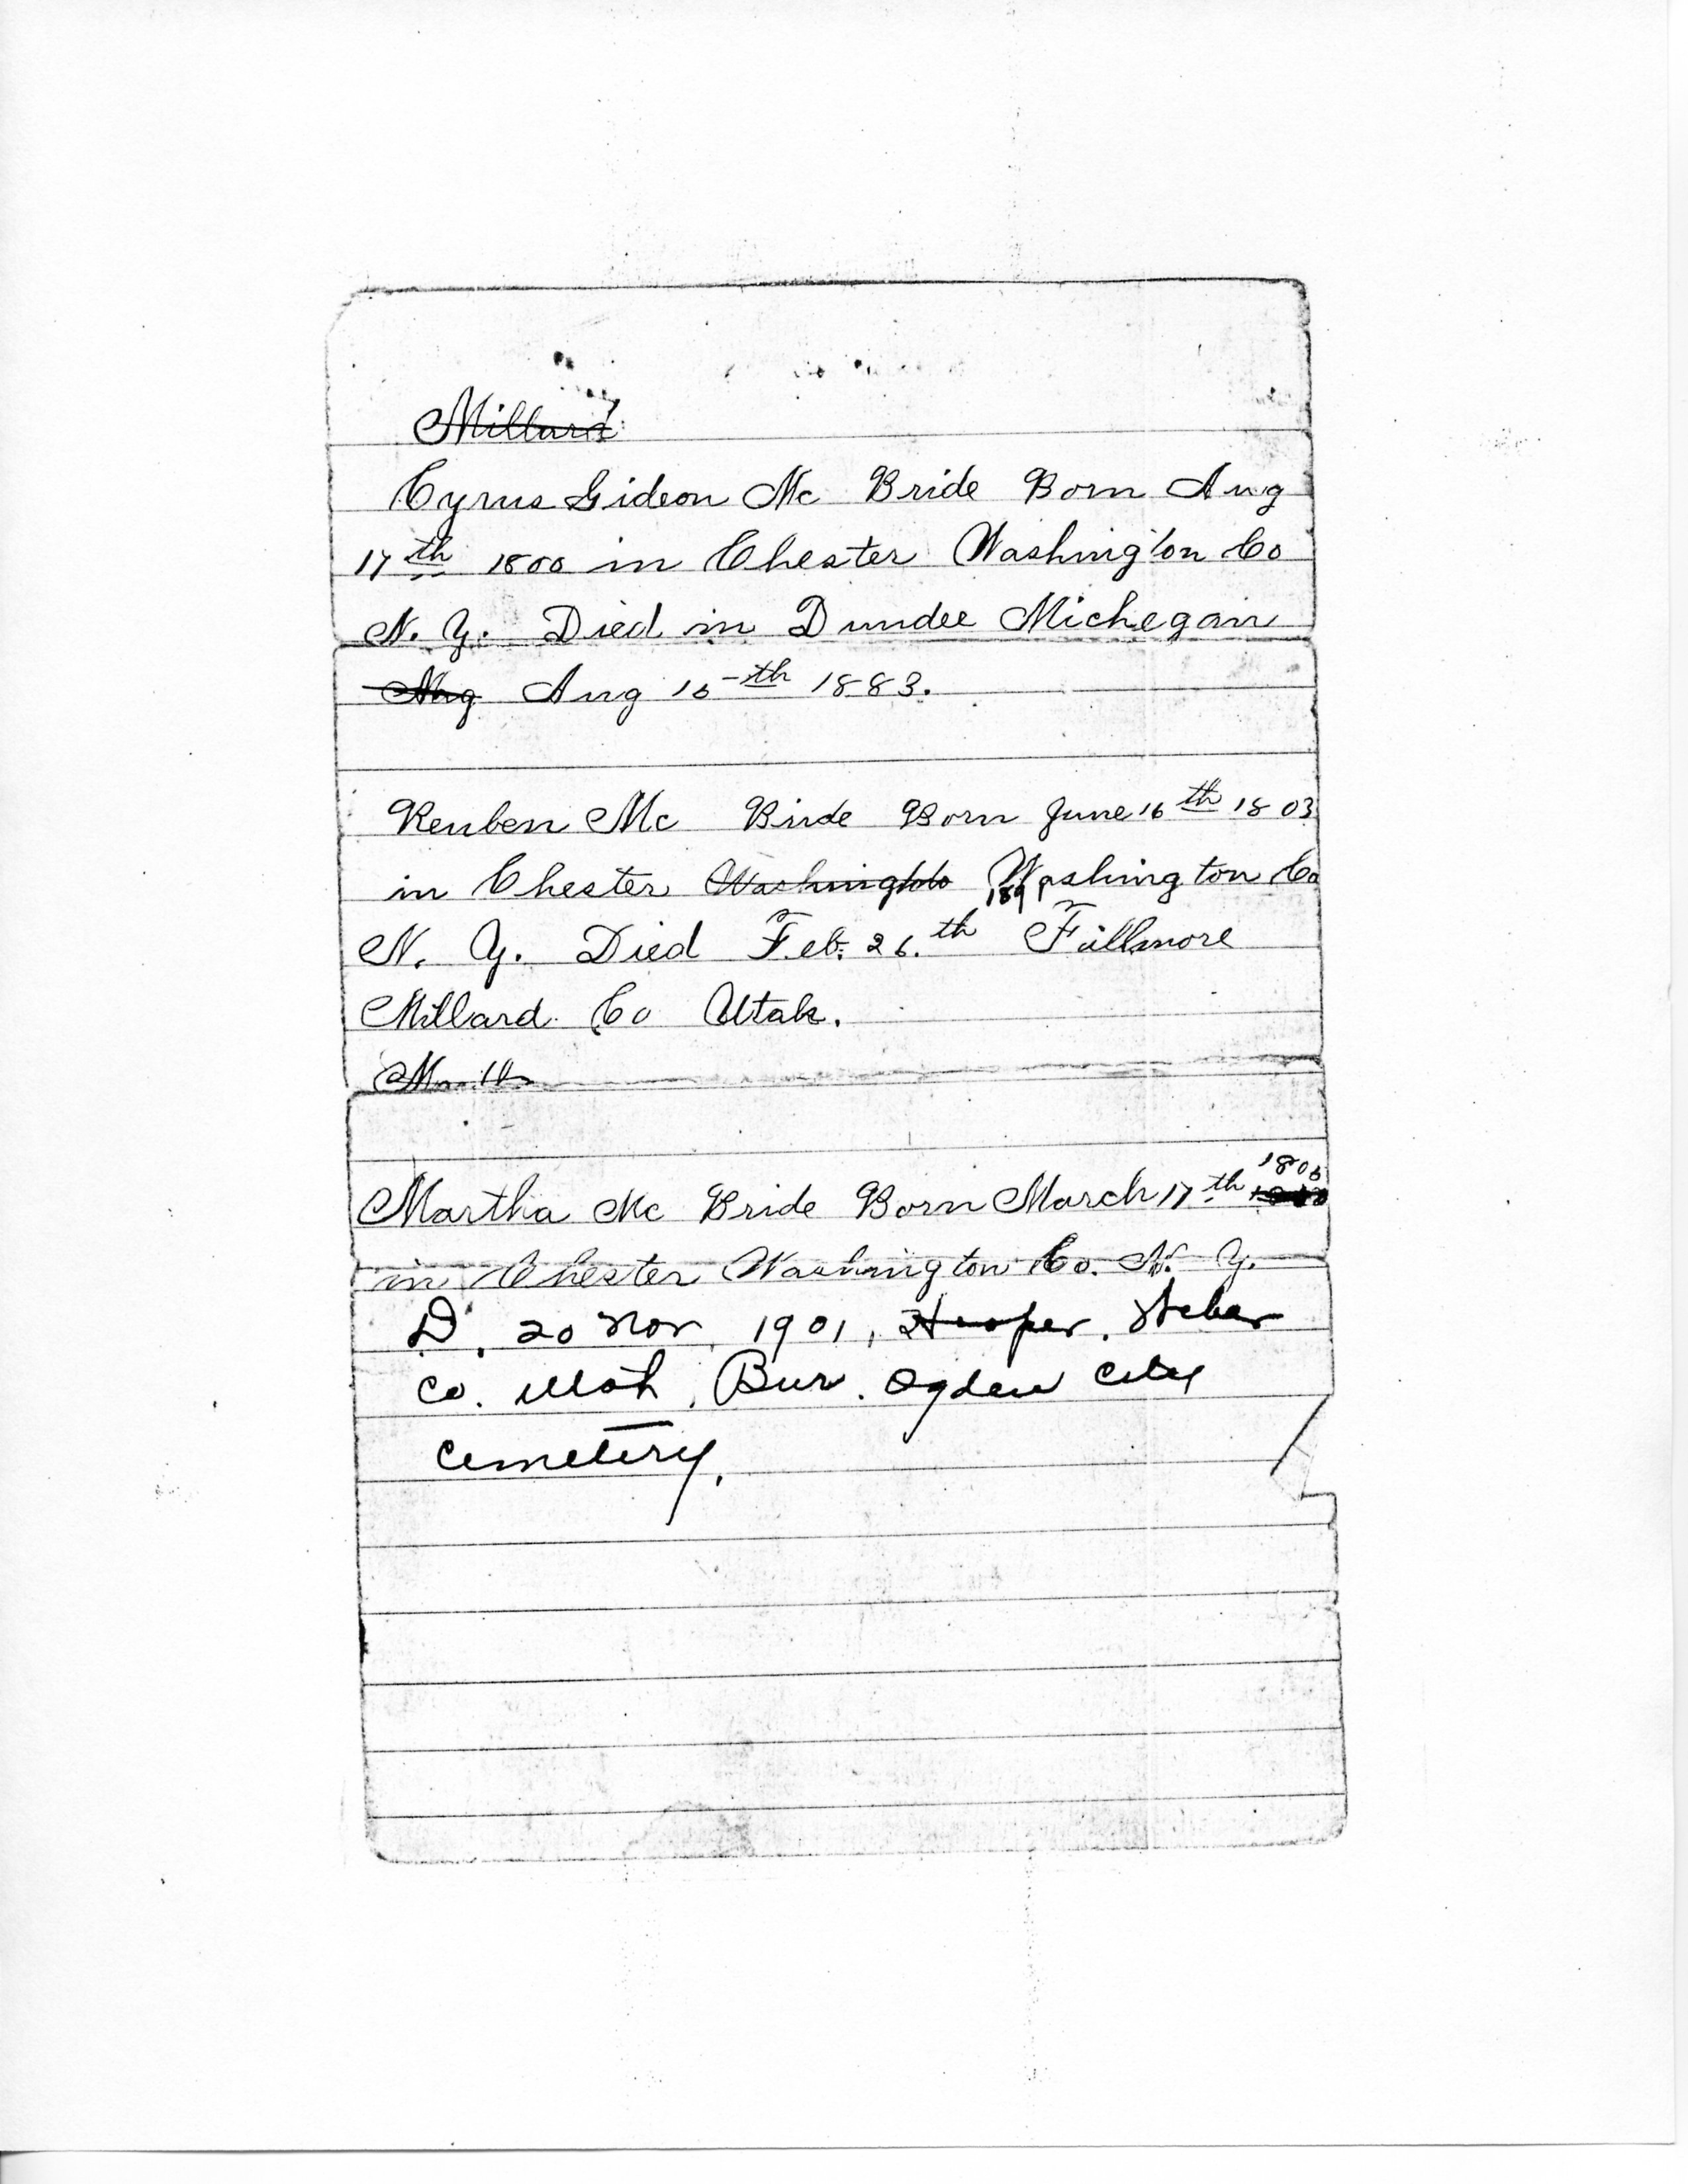 Millard
Cyrus Gideon Mc Bride Born Aug
17th 1800 in Chester Washington Co
N. Y. Died in Dundee Michegan
Aug Aug 10th 1883.
Reuben Mc Bride Born June 16th 1803
in Chester Washingto Washington Co
1891
N. Y. Died Feb. 26.th Fillmore
Millard Co Utah.
Martha Mc Bride Born March 17th 1805
in Chester Washington Co. N. Y.
D. 20 Nov, 1901, Hooper. Weber
Co. Utah, Bur. Ogden City
Cemetery.